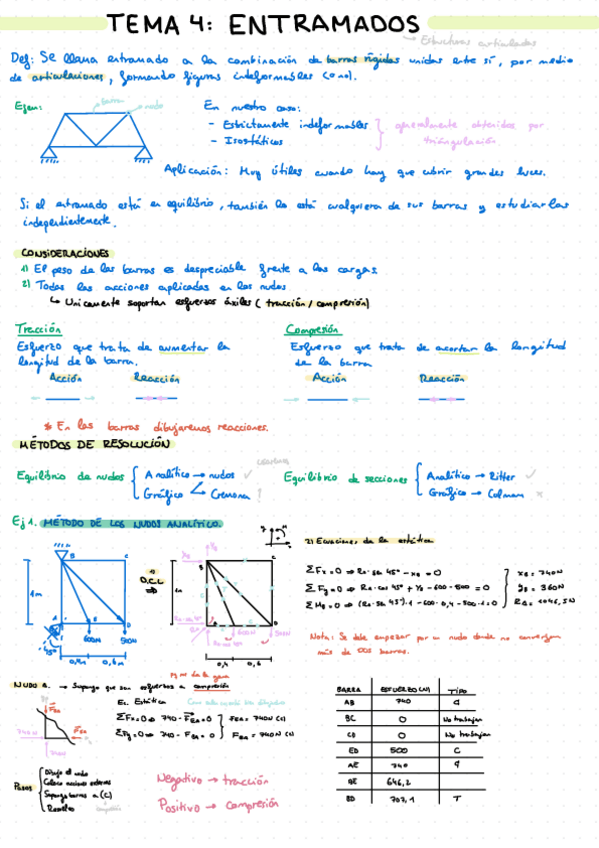 TEMA 4: ENTRAMADOS
Estructuras articuladas
Def: Se llama entramado a la combinación de barras rígidas unidas entre sí, por medio
de articulaciones, formando figuras indeformables (o no).
Ejem:
barra
nudo
En nuestro caso:
- Estrictamente indeformables
- Isostáticos
generalmente obtenidos por
triángulación
Aplicación: Muy útiles cuando hay que cubrir grandes luces.
Si el entramado está en equilibrio, también lo está cualquiera de sus barras y estudiarlas
independientemente.
CONSIDERACIONES
1) El peso de las barras es despreciable frente a las cargas
2) Todas las acciones aplicadas en los nudos
↳ Unicamente soportan esfuerzos áxiles (tracción / compresión)
Tracción
Esfuerzo que trata de aumentar la
longitud de la barra.
Acción Reacción
Compresión
Esfuerzo que trata de acortar la longitud
de la barra
Acción Reacción
* En las barras dibujaremos reacciones.
MÉTODOS DE RESOLUCIÓN
Equilibrio de nudos
Analítico → nudos ✓
Gráfico Cremona !
Equilibrio de secciones
Analítico → Ritter ✓
Gráfico → Culman x
Ej 1. MÉTODO DE LOS NUDOS ANALÍTICO.
B C
1m
E D
45°
600N 500N
0,4m 0,6m
1)
D.C.L
⇒
1m
600N 500N
0,4 0,6
2) Ecuaciones de la estática
ΣFx=0 ⇒ Ra·sen 45° - xB = 0
ΣFy=0 ⇒ Ra·cos 45° + YB - 600 - 500 = 0
ΣMB=0 ⇒ (Ra·sen 45°)·1 - 600·0,4 - 500·1 = 0
xB = 740N
yB = 360N
RA = 1046,5N
Nota: Se debe empezar por un nudo donde no converjan
más de dos barras.
NUDO A. → Supongo que son esfuerzos a compresión
FBA
FEA
740N
740N
Ec. Estática
ΣFx=0 ⇒ 740 - FEA = 0
ΣFy=0 ⇒ 740 - FBA = 0
FEA = 740N (C)
FBA = 740N (C)
Pasos
Dibujo el nudo
Coloco acciones externas
Supongo barras a (C)
Resuelvo
Negativo → tracción
Positivo → compresión
BARRA ESFUERZO (N) TIPO
AB 740 C
BC 0 No trabajan
CD 0 No trabajan
ED 500 C
AE 740 C
BE 646,2
BD 707,1 T